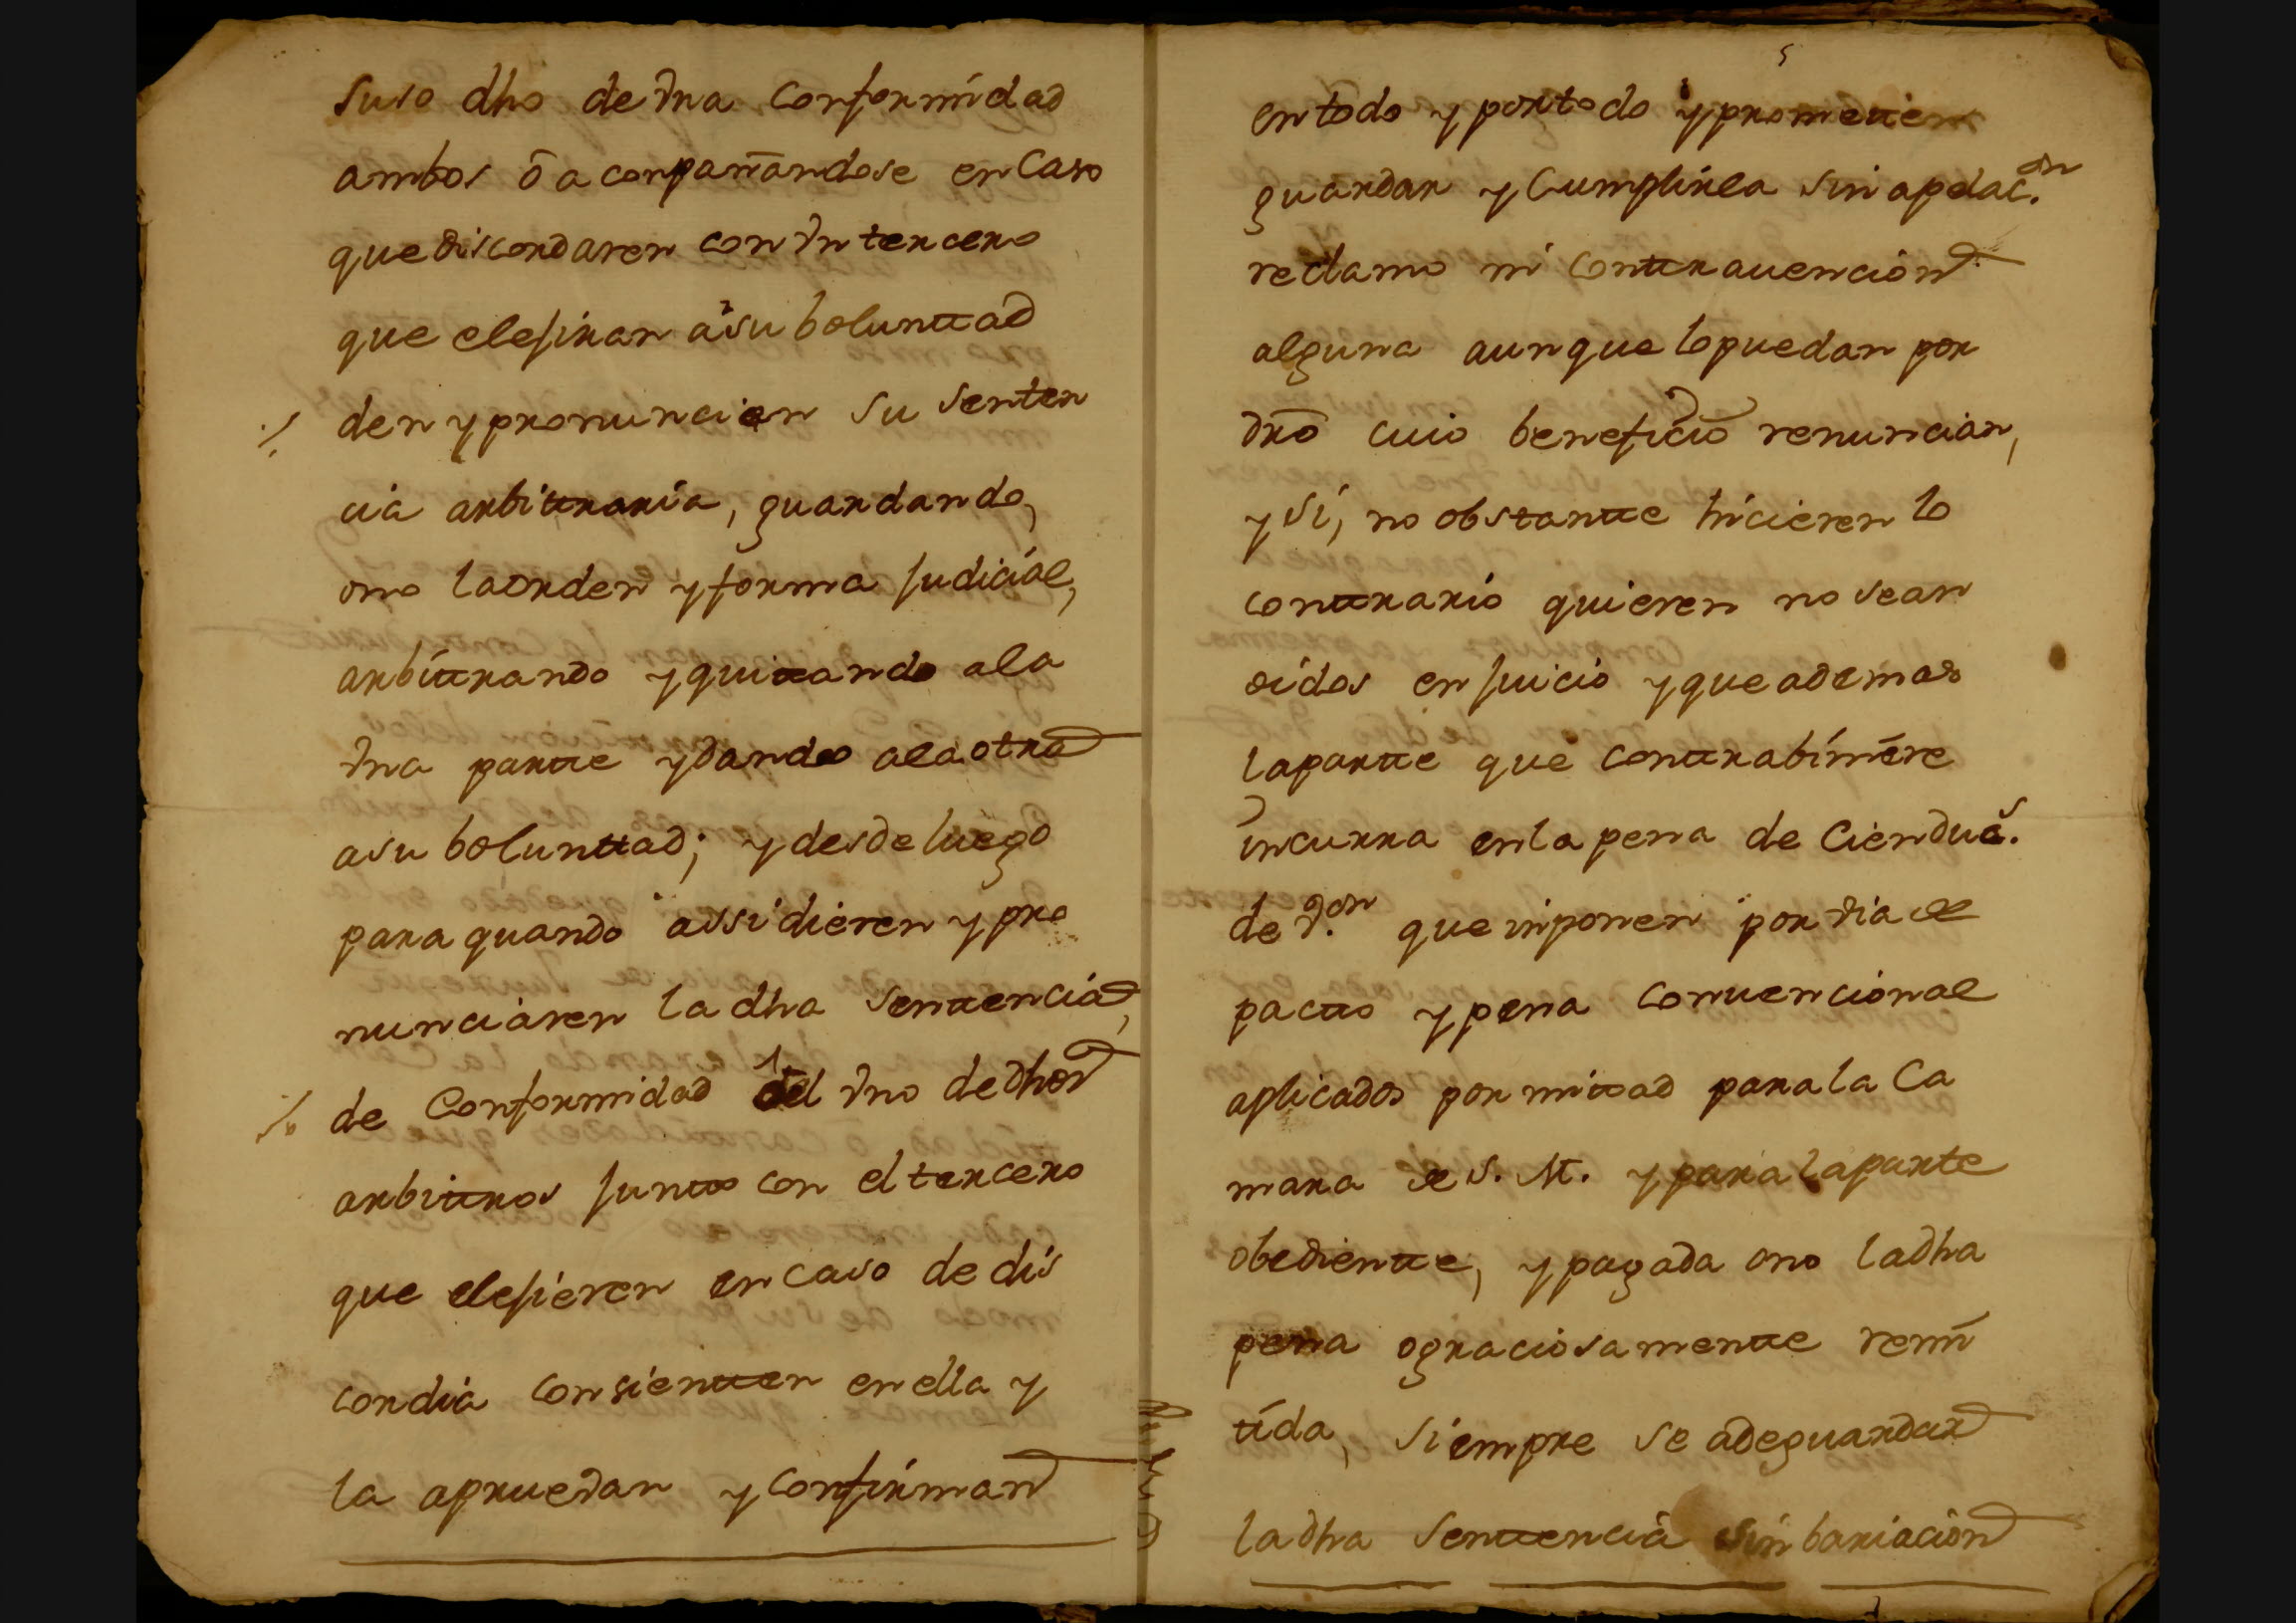 suso dho de vna conformidad
ambos ō a conpañandose en caso
que discordaren con vn tercero
que elejiran á su boluntad
den y pronuncien su senten
cia arbitraria, guardando,
ono la orden y forma judicial,
arbitrando y quitando a la
vna parte y dando a la otra
a su boluntad; y desde luego
para quando assi dieren y pro
nunciaren la dha sentencia,
de conformidad ó el vno de dhos
arbitros junto con el tercero
que elejieren en caso de dis
cordia consienten en ella y
la aprueban y confirman
5
en todo y por todo y prometien
guardar y cumplirla sin apelac.on
reclamo ni contrauencion
alguna aunque lo puedan por
dro cuio beneficio renuncian,
y si, no obstante hicieren lo
contrario quieren no sean
oidos en juicio y que ademas
la parte que contrabiniere
incurra en la pena de cien duc.s
de v.on que inponen por via de
pacto y pena conuencional
aplicados por mitad para la Ca
mara de S. M. y para la parte
obediente, y pagada ono la dha
pena o graciosamente remi
tida, siempre se a de guardar
la dha sentencia sin bariacion